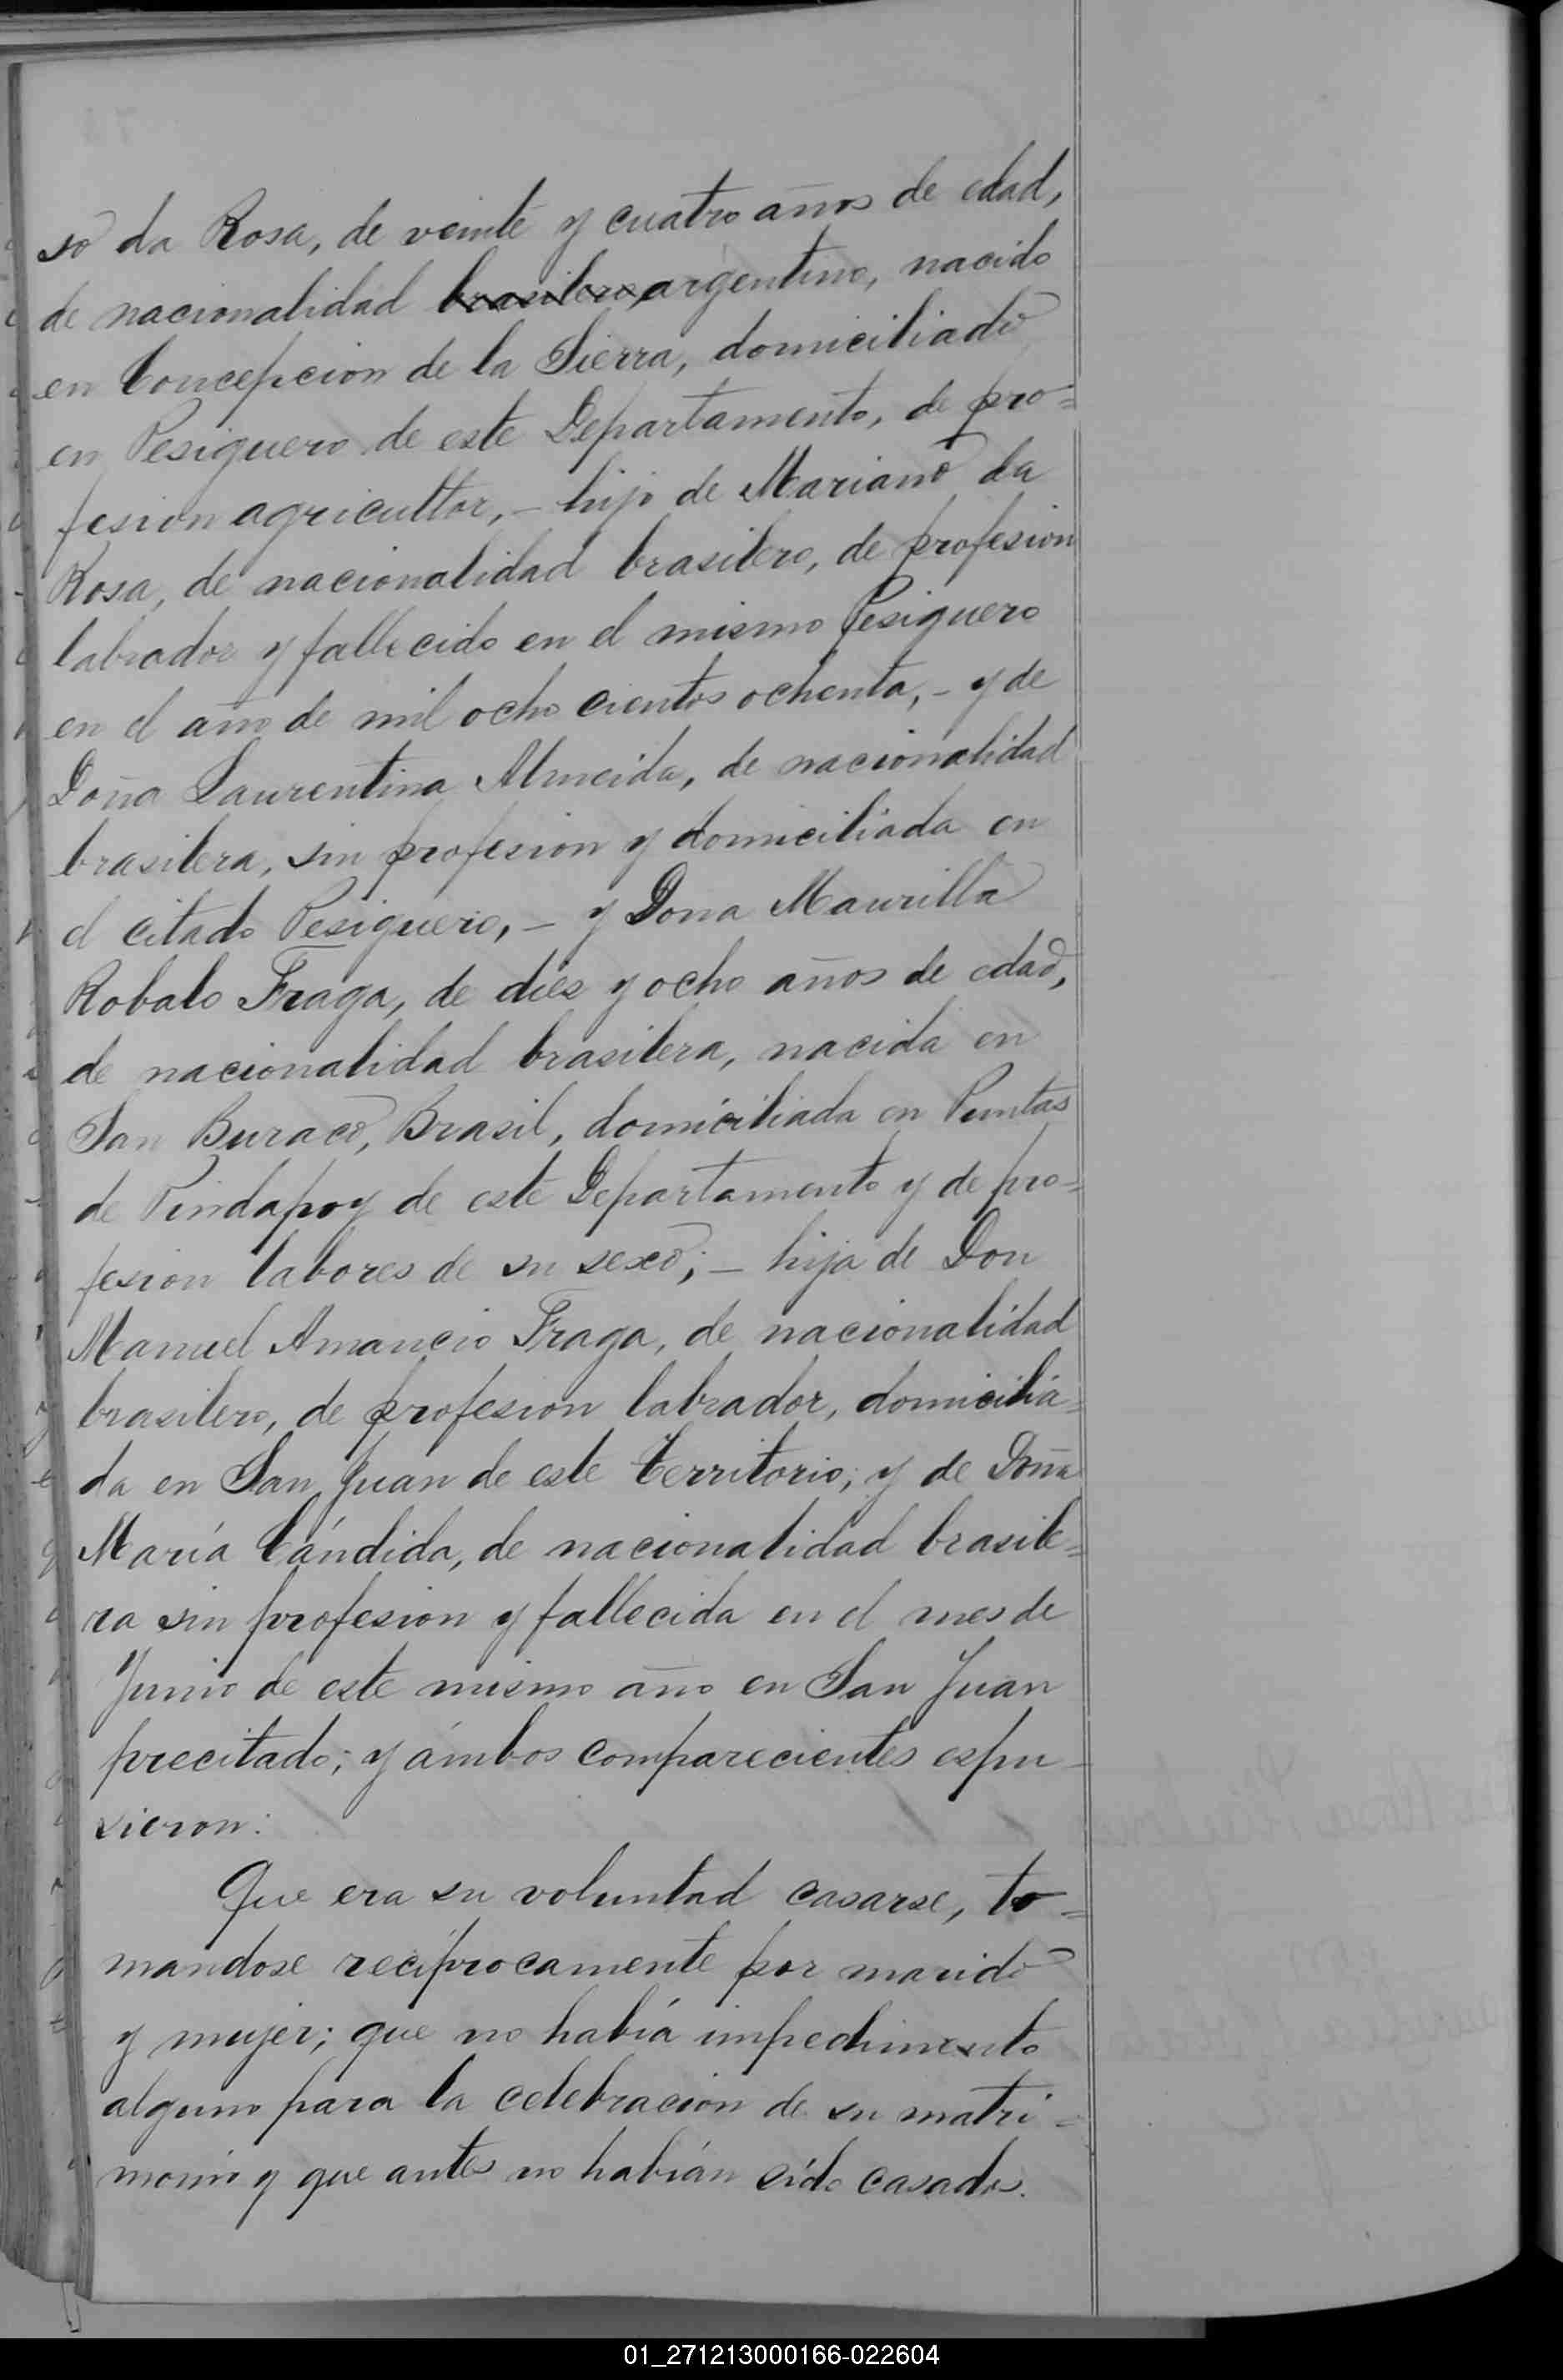 so da Rosa, de veinte y cuatro años de edad,
de nacionalidad brasilero, argentino, nacido
en Concepcion de la Sierra, domiciliado
en Pesiguero de este Departamento, de pro=
fesion agricultor, - hijo de Mariano da
Rosa, de nacionalidad brasilero, de profesion
labrador y fallecido en el mismo Pesiguero
en el año de mil ocho cientos ochenta, - y de
Doña Laurentina Almeida, de nacionalidad
brasilera, sin profesion y domiciliada en
el citado Pesiguero, - y Dona Maurilla
Robalo Fraga, de diez y ocho años de edad,
de nacionalidad brasilera, nacida en
San Buraco, Brasil, domiciliada en Puntas
de Pindapoy de este Departamento y de pro=
fesion labores de su sexo; - hija de Don
Manuel Amancio Fraga, de nacionalidad
brasilero, de profesion labrador, domicilia=
da en San Juan de este territorio; y de Doña
María Cándida, de nacionalidad brasile=
ra sin profesion y fallecida en el mes de
Junio de este mismo año en San Juan
precitado; y ámbos comparecientes espu-
sieron:
Que era su voluntad casarse, to=
mandose recíprocamente por marido
y mujer; que no había impedimento
alguno para la celebracion de su matri=
monio y que antes no habían sído casados.
01_271213000166-022604